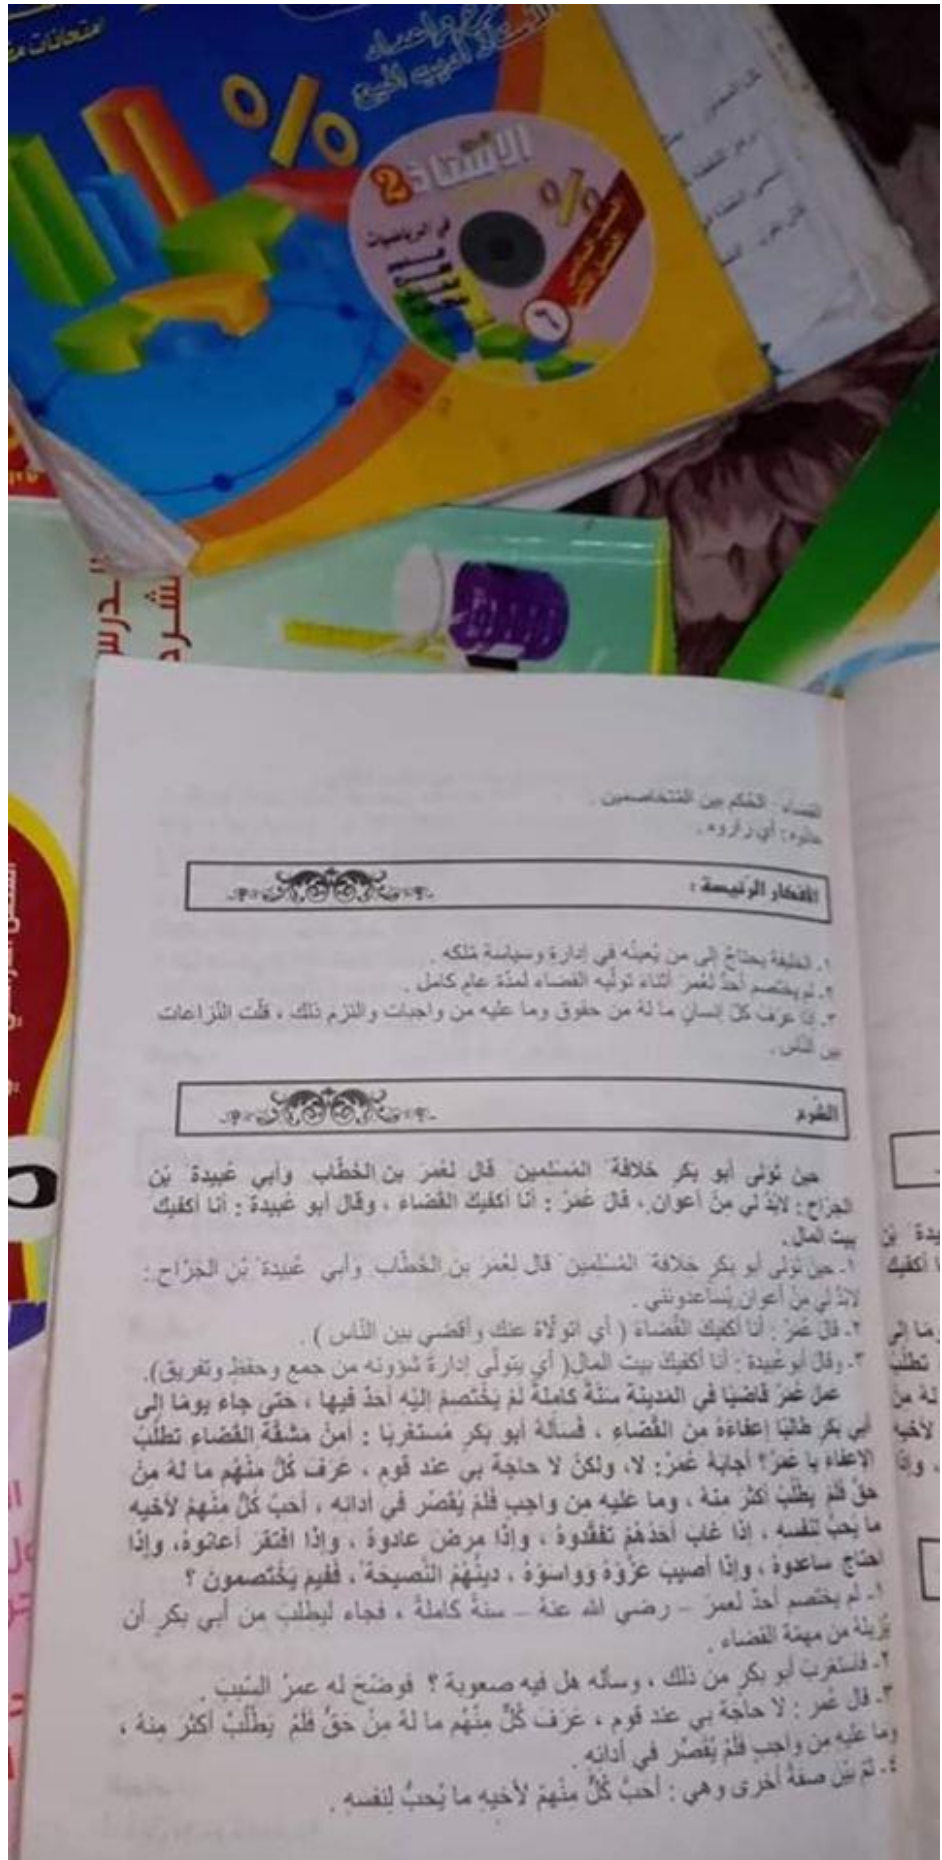 امتحانات
الأستاذ
2
%
في الرياضيات
%
القضاء : الحكم بين المتخاصمين .
عادوه : أي زاروه .
الأفكار الرئيسة :
١. الخليفة يحتاجُ إلى من يُعينُه في إدارة وسياسة مُلكه .
٢. لم يختصم أحدٌ لعُمرَ أثناء تولّيه القضاء لمدّة عام كامل .
٣. إذا عرف كلّ إنسانٍ ما لهُ من حقوق وما عليه من واجبات والتزم ذلك ، قلّت النّزاعات
بين النّاس .
الشّرح
حين تولى أبو بكر خلافة المُسلمين قال لعُمرَ بن الخطّاب وأبي عُبيدة بْن
الجرّاح : لابُدّ لي منْ أعوان ، قال عُمرُ : أنا أكفيكَ القضاء ، وقال أبو عُبيدة : أنا أكفيكَ
بيت المال .
١- حين تولى أبو بكرٍ خلافة المُسْلمين قال لعُمرَ بن الخُطّاب وأبي عُبيدة بْن الجَرّاح :
لابُدّ لي منْ أعوان يُساعدونني .
٢. قال عُمرُ : أنا أكفيكَ القُضاءَ ( أي أتولّاهُ عنك وأقضي بين النّاس ) .
٣- وقال أبوعُبيدة : أنا أكفيكَ بيتَ المال( أي يتولّى إدارة شؤونه من جمع وحفظ وتفريق).
عمل عُمرُ قاضيًا في المدينة سنةً كاملةً لمْ يَخْتصمْ إليْه أحدٌ فيها ، حتى جاء يومًا إلى
أبي بكر طالبًا إعفاءَهُ من القُضاء ، فسألهُ أبو بكر مُستغربًا : أمنْ مشقّة القضاء تطلُبُ
الإعفاءَ يا عُمرُ؟ أجابهُ عُمرُ: لا، ولكنْ لا حاجة بي عند قوم ، عرَف كُلٌّ منْهم ما لهُ منْ
حقٍّ فلمْ يطلُبْ أكثر منهُ ، وما عليْه من واجب فلمْ يُقصّر في أدائه ، أحبّ كُلٌّ منهمْ لأخيه
ما يحبُّ لنفسه ، إذا غاب أحدُهُمْ تفقّدوهُ ، وإذا مرض عادوهُ ، وإذا افتقر أعانوهُ، وإذا
احتاج ساعدوهُ ، وإذا أصيب عزّوْهُ وواسوْهُ ، دينُهُمْ النّصيحة ، ففيم يَخْتصمونَ ؟
١- لم يختصم أحدٌ لعمرَ – رضي الله عنهُ – سنةً كاملةً ، فجاء ليطلبَ من أبي بكرٍ أن
يُزيلهُ من مهمّة القضاء .
٢- فاستغربَ أبو بكرٍ من ذلك ، وسأله هل فيه صعوبة ؟ فوضّحَ له عمرُ السّببَ .
٣- قال عُمر : لا حاجَة بي عند قوم ، عَرَفَ كُلٌّ مِنْهُم ما لهُ مِنْ حَقٍّ فلَمْ يَطْلُبْ أكثر مِنهُ ،
وما عليه مِن واجبٍ فلَمْ يُقصِّر في أدائِه .
٤- ثمّ بيّن صفةً أخرى وهي : أحبَّ كُلٌّ منْهمْ لأخيهِ ما يُحبُّ لِنفسهِ .